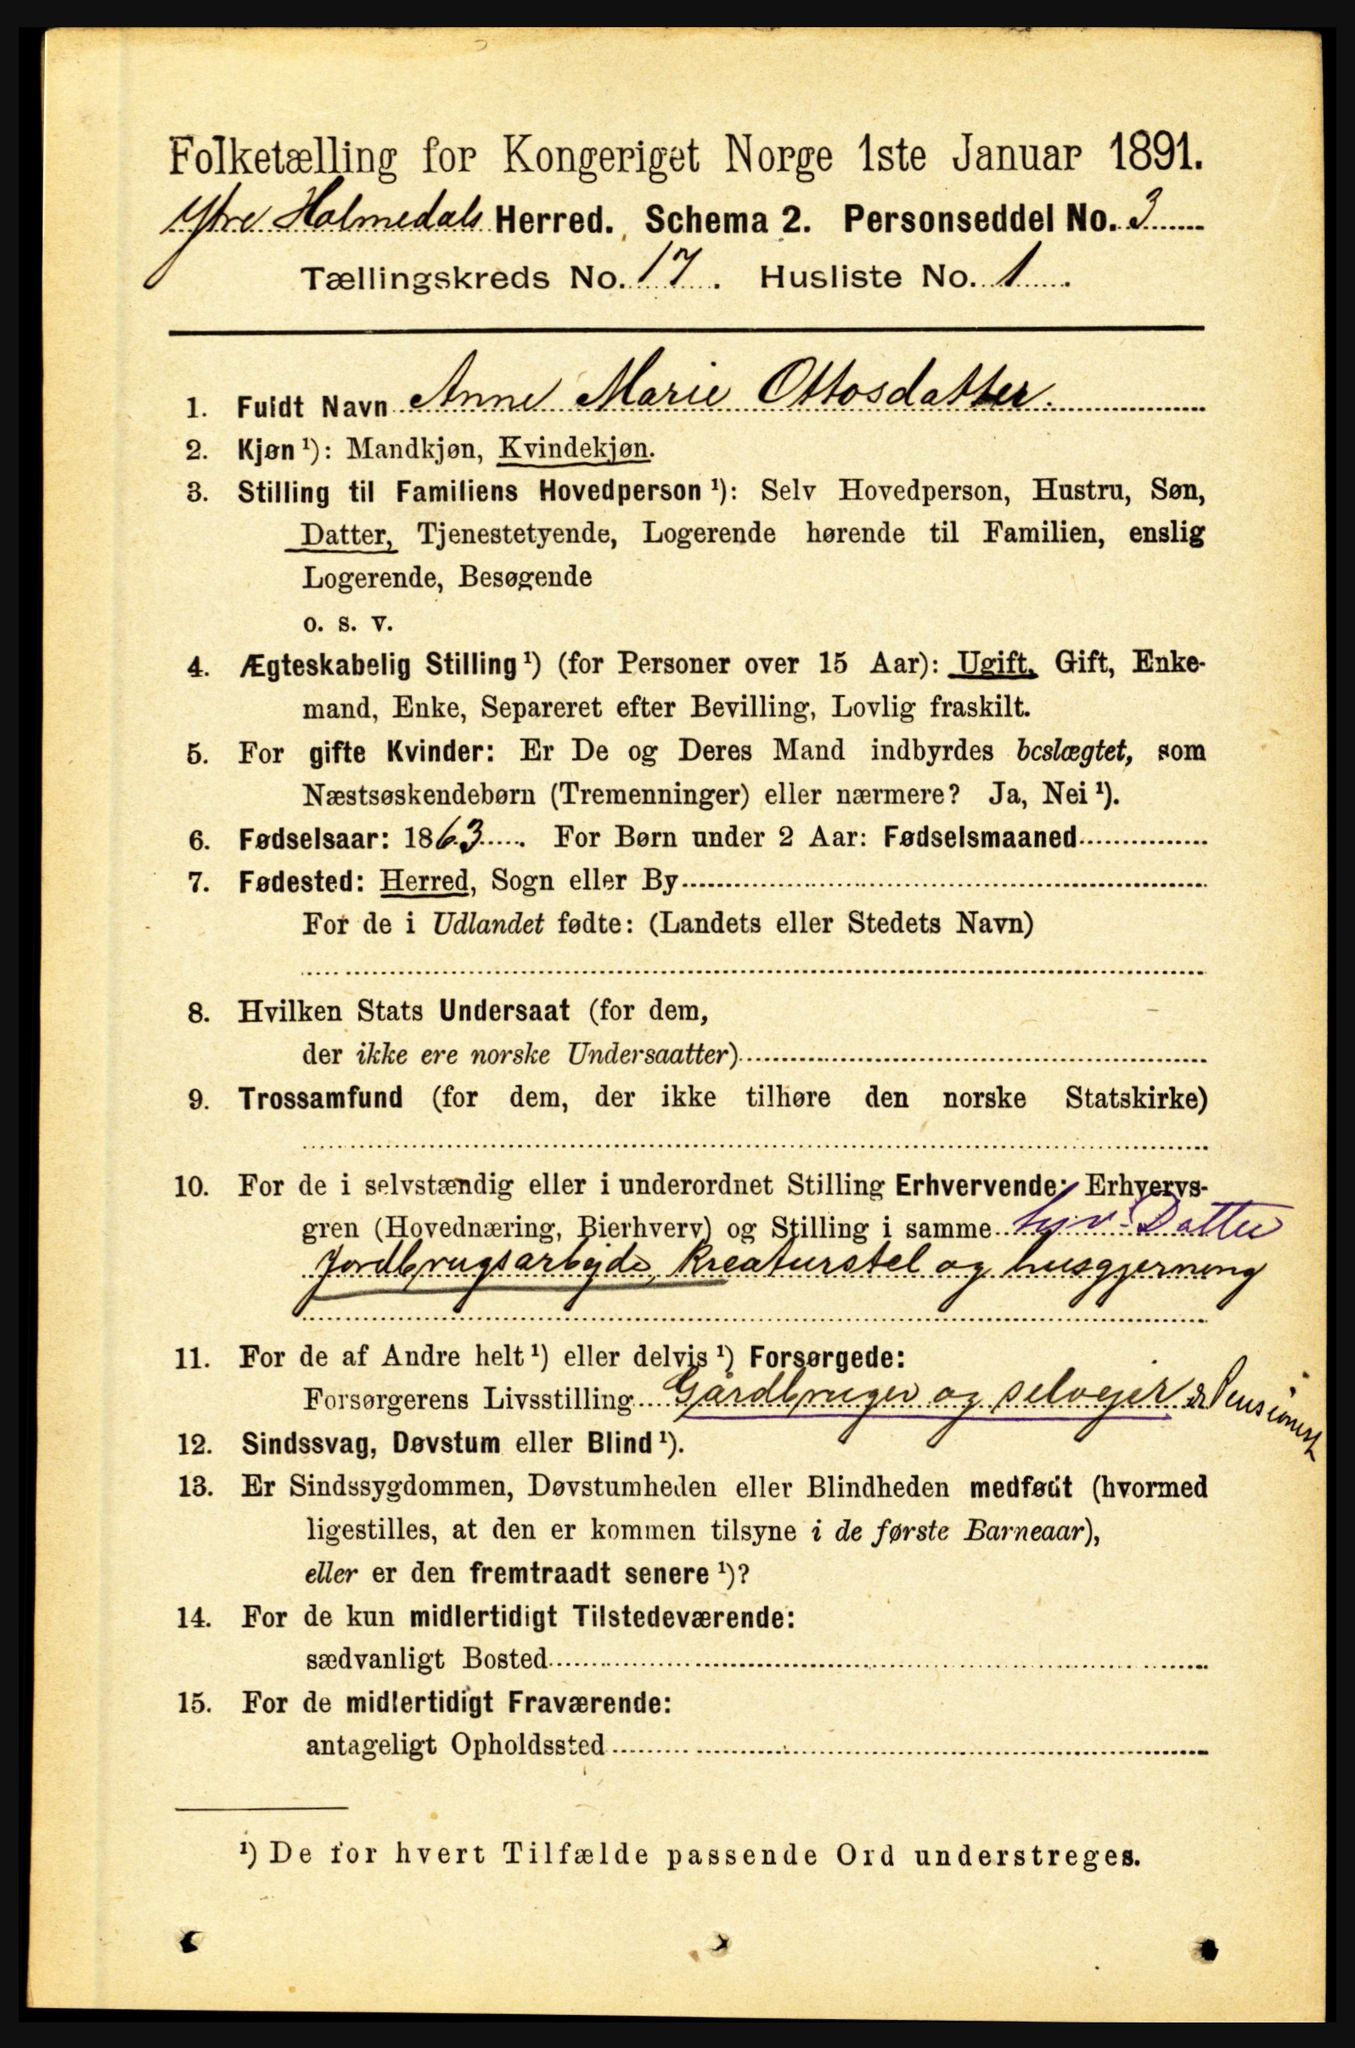 Folketælling for Kongeriget Norge 1ste Januar 1891.
Ytre Holmedals Herred. Schema 2. Personseddel No. 3
Tællingskreds No. 17. Husliste No. 1.
1. Fuldt Navn Anne Marie Ottosdatter.
2. Kjøn ¹): Mandkjøn, Kvindekjøn.
3. Stilling til Familiens Hovedperson ¹): Selv Hovedperson, Hustru, Søn,
Datter, Tjenestetyende, Logerende hørende til Familien, enslig
Logerende, Besøgende
o. s. v.
4. Ægteskabelig Stilling ¹) (for Personer over 15 Aar): Ugift, Gift, Enke-
mand, Enke, Separeret efter Bevilling, Lovlig fraskilt.
5. For gifte Kvinder: Er De og Deres Mand indbyrdes beslægtet, som
Næstsøskendebørn (Tremenninger) eller nærmere? Ja, Nei ¹).
6. Fødselsaar: 1863. For Børn under 2 Aar: Fødselsmaaned
7. Fødested: Herred, Sogn eller By
For de i Udlandet fødte: (Landets eller Stedets Navn)
8. Hvilken Stats Undersaat (for dem,
der ikke ere norske Undersaatter)
9. Trossamfund (for dem, der ikke tilhøre den norske Statskirke)
10. For de i selvstændig eller i underordnet Stilling Erhvervende: Erhvervs-
gren (Hovednæring, Bierhverv) og Stilling i samme Datter
Jordbrugsarbejde, kreaturstel og husgjerning
11. For de af Andre helt ¹) eller delvis ¹) Forsørgede:
Forsørgerens Livsstilling Gårdbruger og selvejer & Pensionist
12. Sindssvag, Døvstum eller Blind ¹).
13. Er Sindssygdommen, Døvstumheden eller Blindheden medfødt (hvormed
ligestilles, at den er kommen tilsyne i de første Barneaar),
eller er den fremtraadt senere ¹)?
14. For de kun midlertidigt Tilstedeværende:
sædvanligt Bosted
15. For de midlertidigt Fraværende:
antageligt Opholdssted
¹) De for hvert Tilfælde passende Ord understreges.